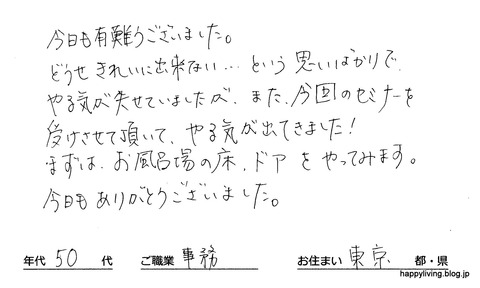 今日も有難うございました。
どうせきれいに出来ない…という思いばかりで、
やる気が失せていましたが、また、今回のセミナーを
受けさせて頂いて、やる気が出てきました!
まずは、お風呂場の床、ドアをやってみます。
今日もありがとうございました。
年代 50 代 ご職業 事務 お住まい 東京 都・県
happyliving.blog.jp